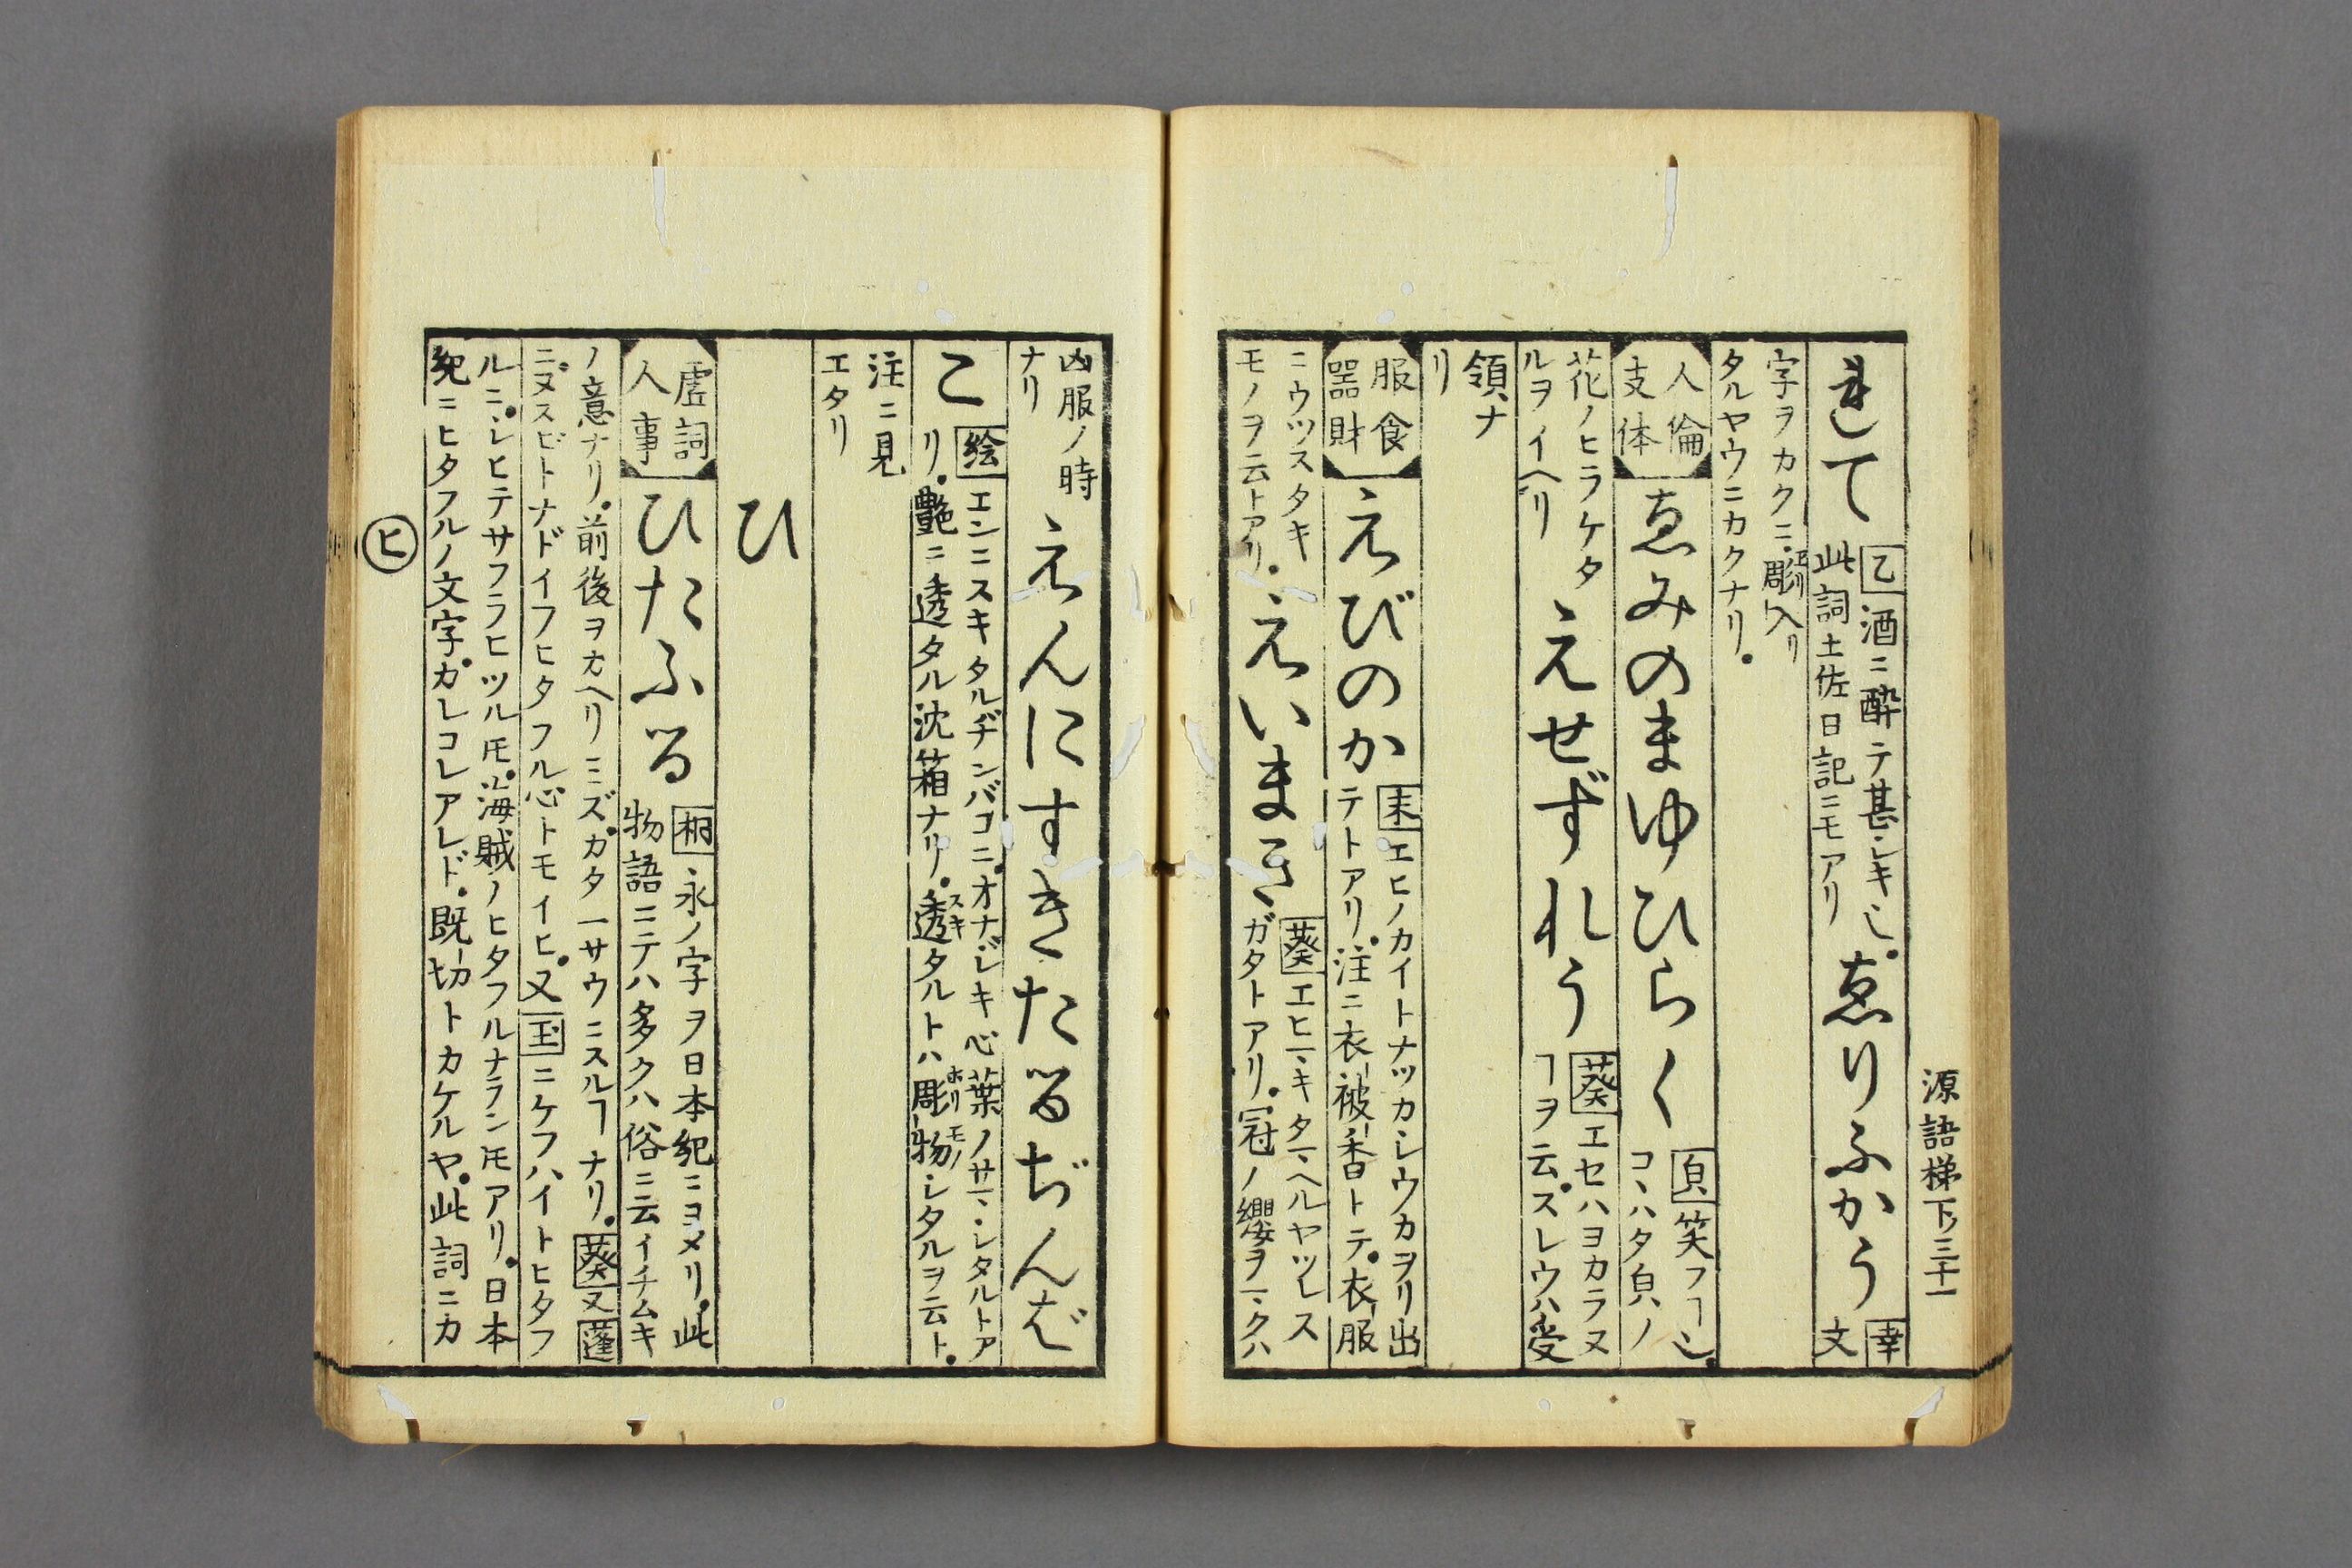 源語梯下ノ三十一
まれて
乙酒ニ酔テ甚シキ也。
此詞土佐日記ニモアリ
ゑりふかう
幸文
字ヲカクニ。彫入リ
タルヤウニカクナリ。
人倫
支体
ゑみのまゆひらく
㒵笑フヿ也。
コヽハタ㒵ノ
花ノヒラケタ
ルヲイヘリ
えせずれう
葵エセハヨカラヌ
ヿヲ云。スレウハ受
領ナ
リ
服食
器財
えびのか
末エヒノカイトナツカシウカヲリ出
テトアリ。注ニ衣被香トテ。衣服
ニウツスタキ
モノヲ云トアリ。
えいまき
葵エヒマキタマヘルヤツレス
ガタトアリ。冠ノ纓ヲマクハ
凶服ノ時
ナリ
えんにすきたるぢんば
こ
絵エンニスキタルヂンバコニ。オナジキ心葉ノサマシタルトア
リ。艶ニ透タル沈箱ナリ。透タルトハ彫物シタルヲ云ト。
注ニ見
エタリ
ひ
虚詞
人事
ひたふる
桐永ノ字ヲ日本紀ニヨメリ。此
物語ニテハ多クハ俗ニ云イチムキ
ノ意ナリ。前後ヲカヘリミズ。カタ一サウニスルヿナリ。葵又蓬
ニヌスビトナドイフヒタフル心トモイヒ。又玉ニケフハイトヒタフ
ルニ。シヒテサフラヒツルモ。海賊ノヒタフルナランモアリ。日本
紀ニヒタフルノ文字。カレコレアレド。既切トカケルヤ。此詞ニカ
ヒ